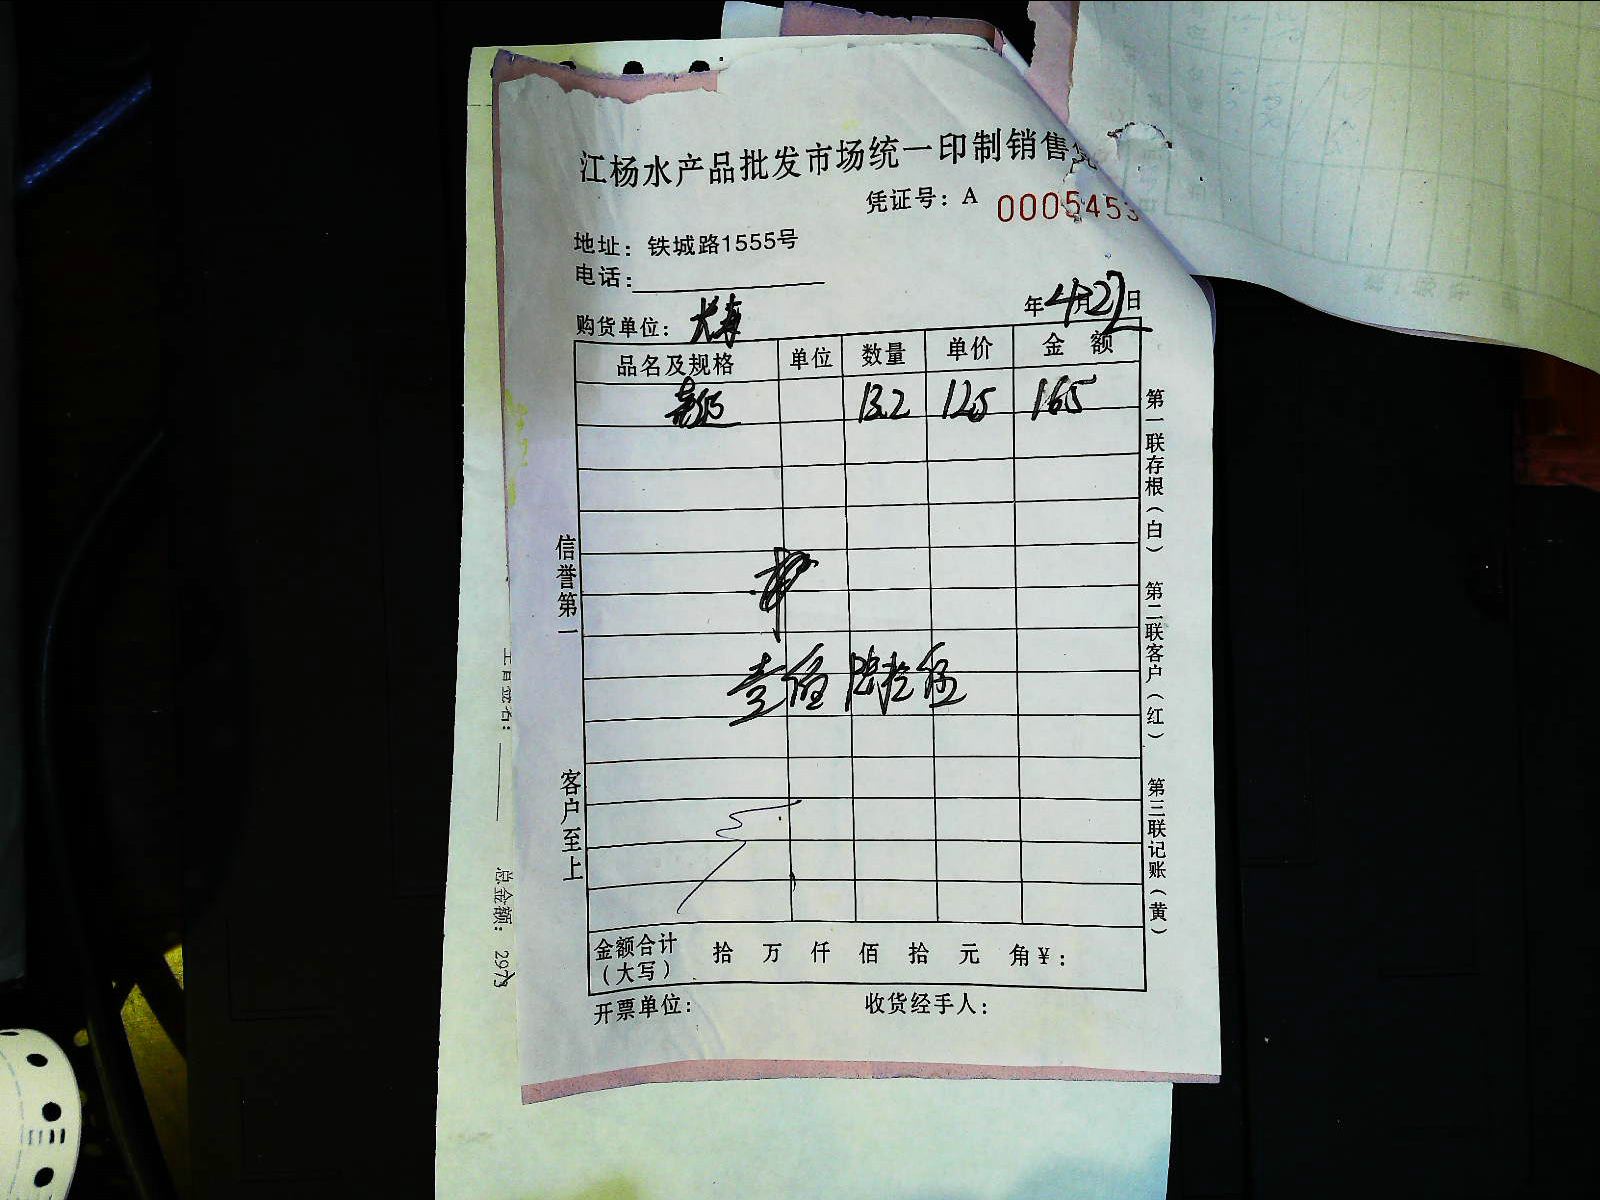 江杨水产品批发市场统一印制销售
凭证号：A 0005453
地址：铁城路1555号
电话：
购货单位：大海
年4月27日
品名及规格 单位 数量 单价 金额
13.2 125 165
壹佰陆拾伍
金额合计（大写） 拾 万 仟 佰 拾 元 角￥：
开票单位： 收货经手人：
信誉第一
客户至上
第一联存根（白） 第二联客户（红） 第三联记账（黄）
总金额：2973